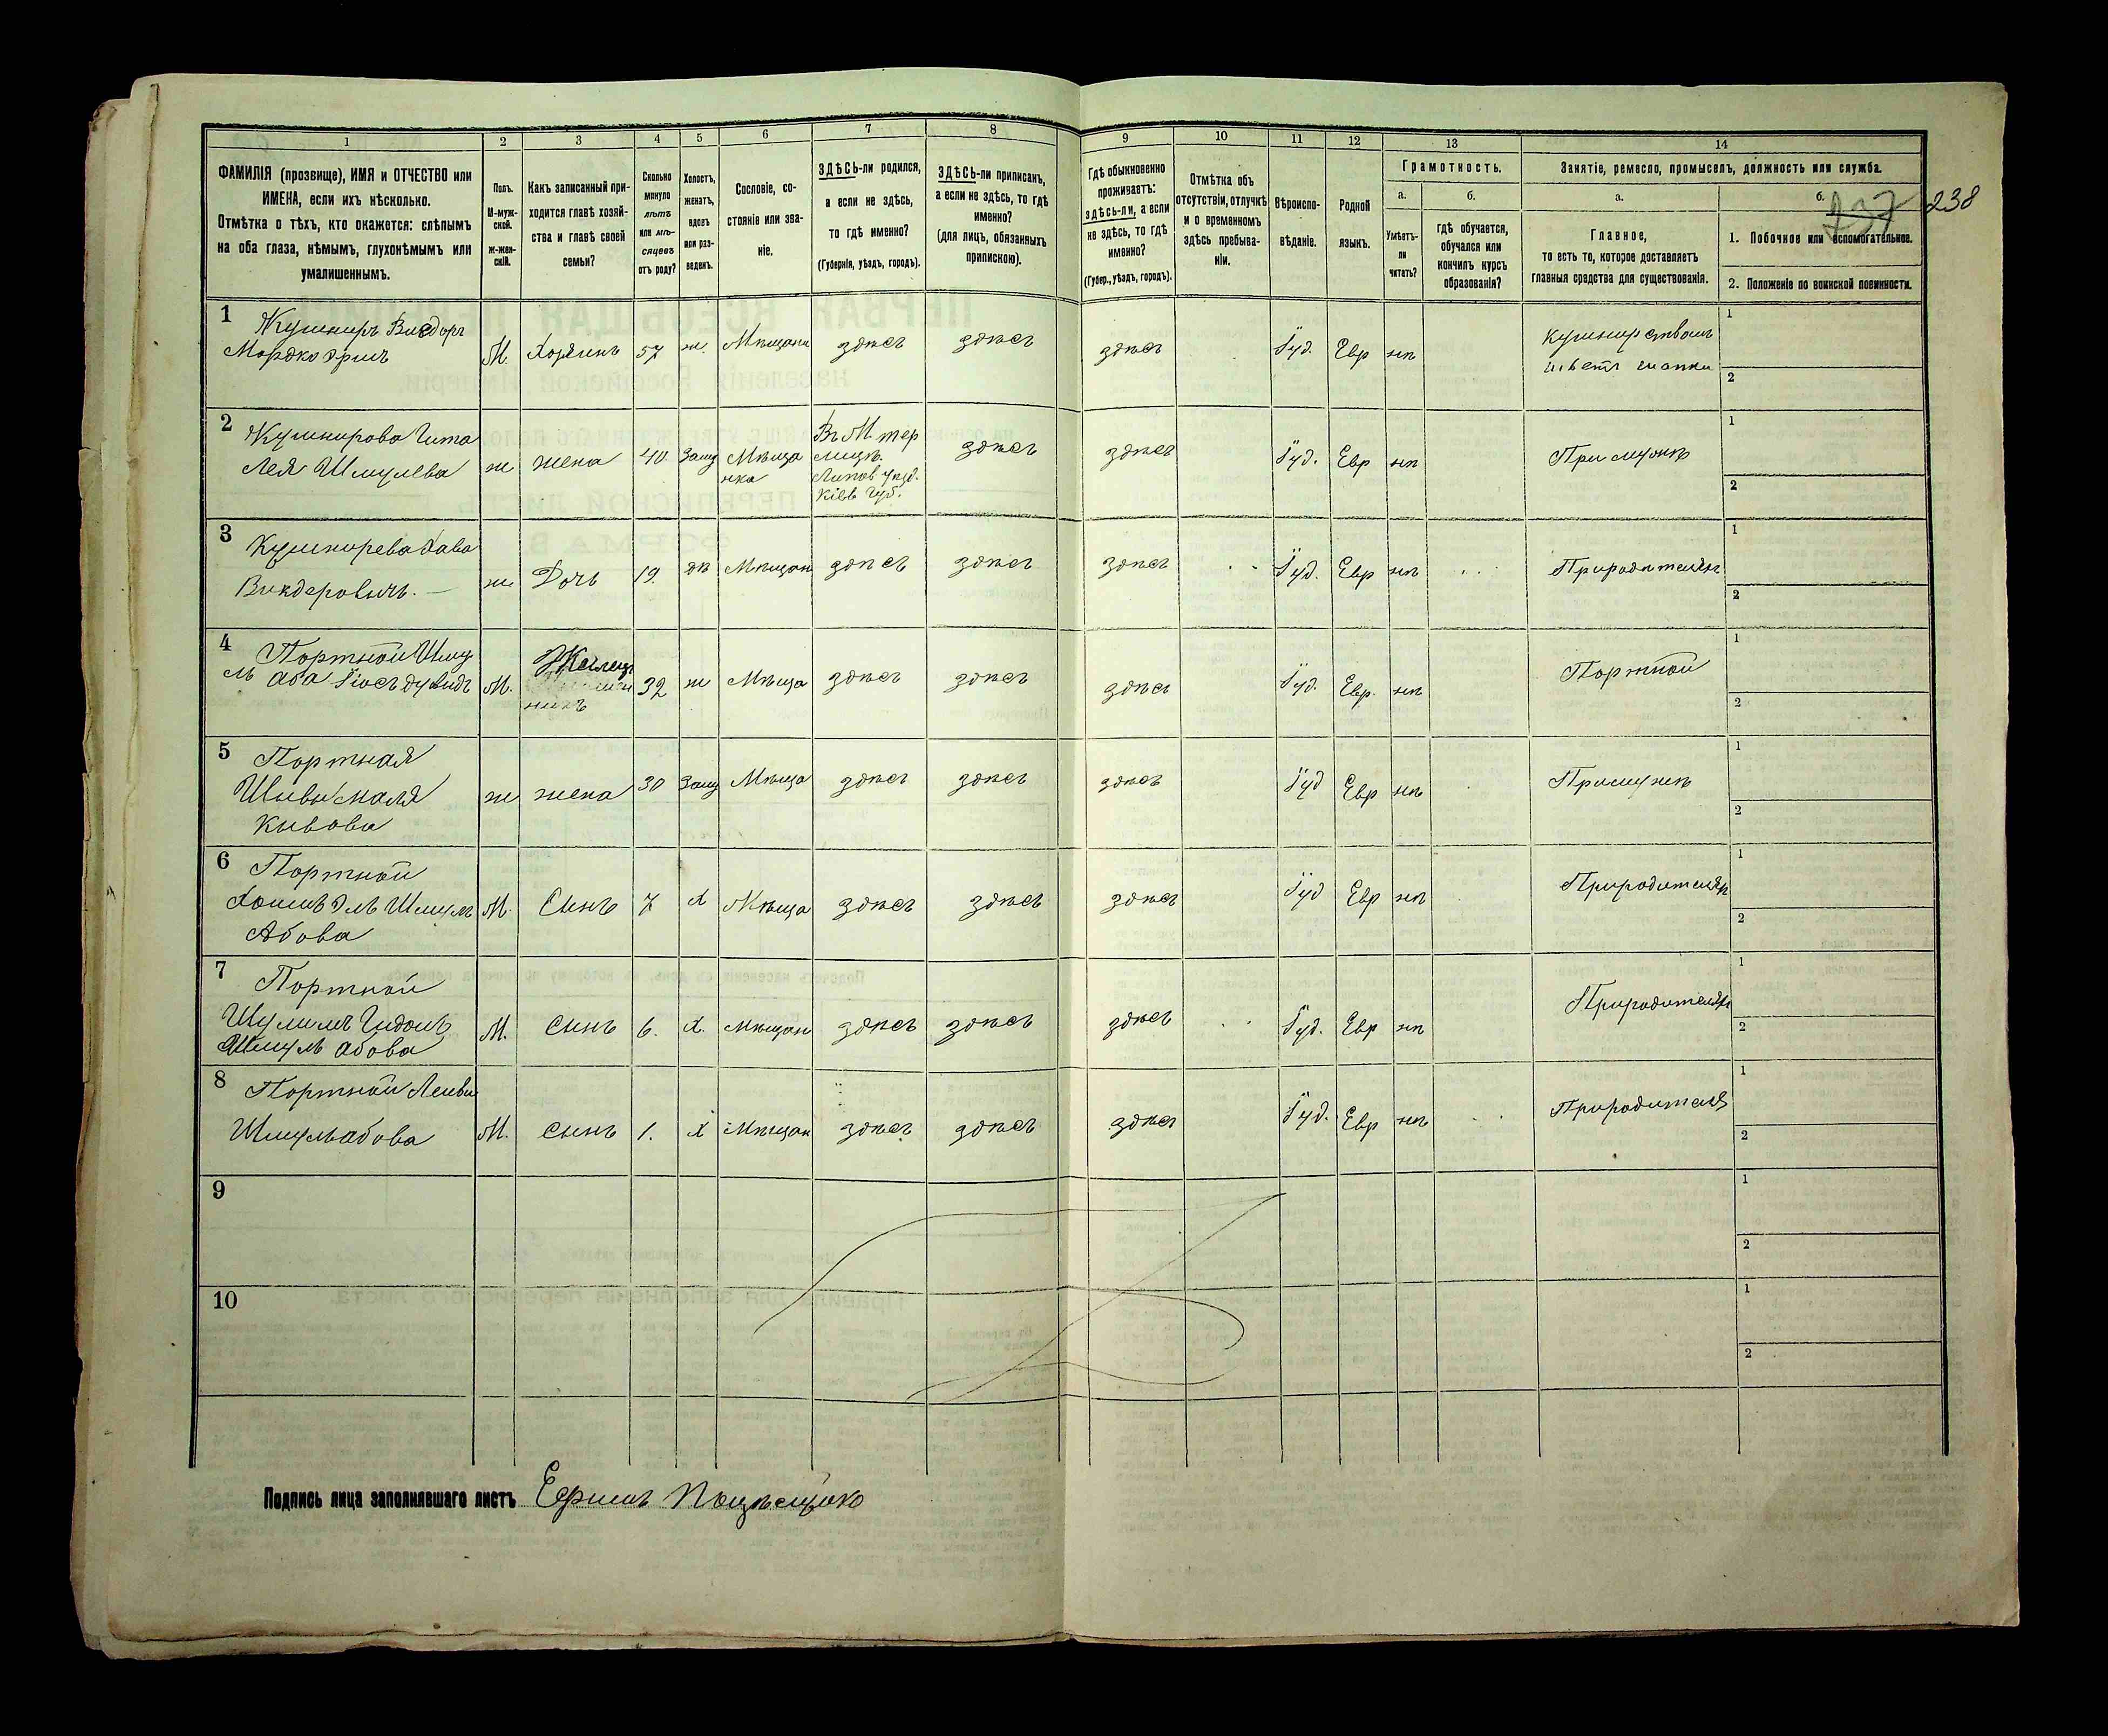 1 2 3 4 5 6 7 8 9 10 11 12 13 14
ФАМИЛІЯ (прозвище), ИМЯ и ОТЧЕСТВО или
ИМЕНА, если ихъ нѣсколько.
Отмѣтка о тѣхъ, кто окажется: слѣпымъ
на оба глаза, нѣмымъ, глухонѣмымъ или
умалишеннымъ.
Полъ.
М-муж-
ской.
ж-жен-
скій.
Какъ записанный при-
ходится главѣ хозяй-
ства и главѣ своей
семьи?
Сколько
минуло
лѣтъ
или мѣ-
сяцевъ
отъ роду?
Холостъ,
женатъ,
вдовъ
или раз-
веденъ.
Сословіе, со-
стояніе или зва-
ніе.
ЗДѢСЬ-ли родился,
а если не здѣсь,
то гдѣ именно?
(Губернія, уѣздъ, городъ).
ЗДѢСЬ-ли приписанъ,
а если не здѣсь, то гдѣ
именно?
(для лицъ, обязанныхъ
припискою).
Гдѣ обыкновенно
проживаетъ:
здѣсь-ли, а если
не здѣсь, то гдѣ
именно?
(Губер., уѣздъ, городъ).
Отмѣтка объ
отсутствіи, отлучкѣ
и о временномъ
здѣсь пребыва-
ніи.
Вѣроиспо-
вѣданіе.
Родной
языкъ.
Грамотность.
а.
Умѣетъ-
ли
читать?
б.
гдѣ обучается,
обучался или
кончилъ курсъ
образованія?
Занятіе, ремесло, промыселъ, должность или служба.
а.
Главное,
то есть то, которое доставляетъ
главныя средства для существованія.
б.
237 238
1. Побочное или вспомогательное.
2. Положеніе по воинской повинности.
1 Кушниръ
М. Хозяинъ 57 ж. здѣсь здѣсь здѣсь Іуд. Евр нѣ
шьетъ шапки
1
2
2 Кушнирова
Лея Шмулева ж жена 40 Заму Мѣща
нка
Липов уѣзд.
Кіев Губ.
здѣсь здѣсь Іуд. Евр нѣ При мужѣ
1
2
3 Кушнирева Хава
ж Дочь 19. дѣ Мѣщан здѣсь здѣсь здѣсь Іуд. Евр нѣ
1
2
4 Портной Шму
ль Аба
М. Жилец 32 ж Мѣща здѣсь здѣсь здѣсь Іуд. Евр. нѣ Портной
1
2
5 Портная
ж жена 30 Заму Мѣща здѣсь здѣсь здѣсь Іуд Евр нѣ При мужѣ
1
2
6 Портной
Шмуль М. Сынъ 7 Х Мѣща здѣсь здѣсь здѣсь Іуд Евр нѣ
Абова
1
2
7 Портной
Шмуль Абова М. Сынъ 6. Х. Мѣщан здѣсь здѣсь здѣсь Іуд. Евр нѣ
1
2
8 Портной
Шмульабова М. Сынъ 1. Х Мѣщан здѣсь здѣсь здѣсь Іуд. Евр нѣ
1
2
9
1
2
10
1
2
Подпись лица заполнявшаго листъ Ефимъ